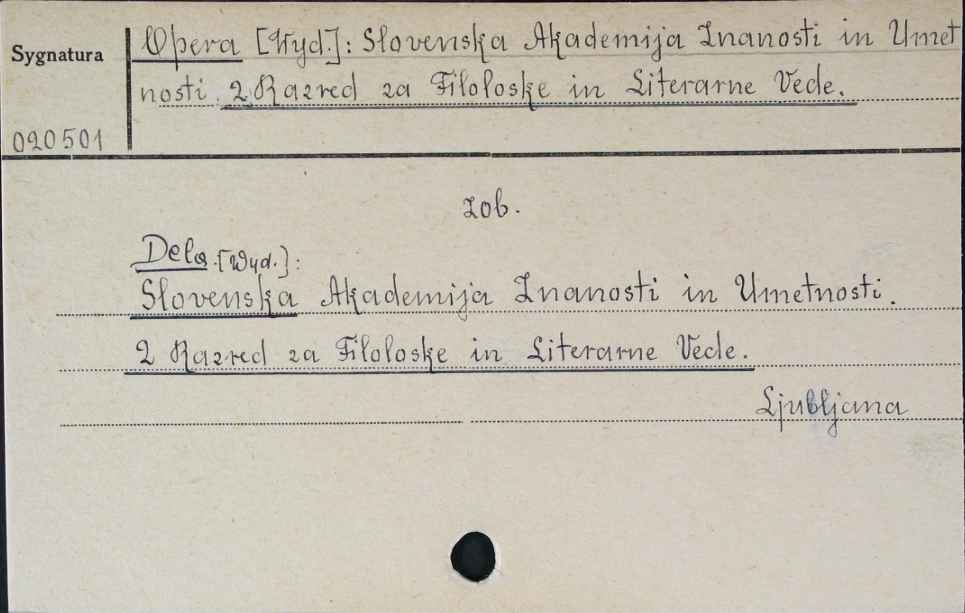 Sygnatura
Opera [Wyd.]: Slovenska Akademija Znanosti in Umet
nosti. 2 Razred za Filoloske in Literarne Vede.
020501
zob.
Dela [Wyd.]:
Slovenska Akademija Znanosti in Umetnosti.
2 Razred za Filoloske in Literarne Vede.
Ljubljana